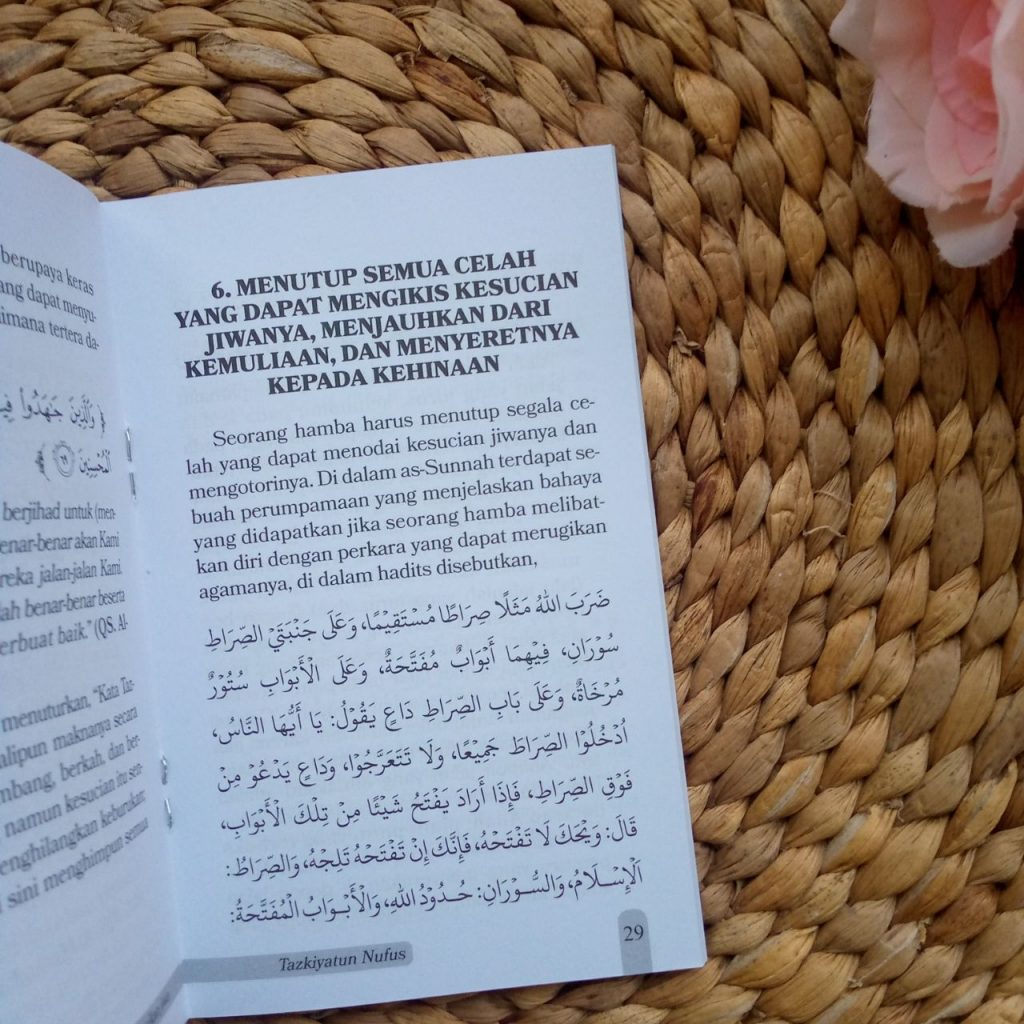 berupaya keras
ang dapat menyu-
imana tertera da-
﴿ وَالَّذِينَ جَهَدُوا فِي
الْمُحْسِنِينَ ﴾
berjihad untuk (men-
enar-benar akan Kami
reka jalan-jalan Kami
lah benar-benar beserta
erbuat baik." (QS. Al-
menuturkan, "Kata Taz-
alipun maknanya secara
mbang, berkah, dan ber-
namun kesucian itu sen-
enghilangkan keburukan;
sini menghimpun semua
6. MENUTUP SEMUA CELAH
YANG DAPAT MENGIKIS KESUCIAN
JIWANYA, MENJAUHKAN DARI
KEMULIAAN, DAN MENYERETNYA
KEPADA KEHINAAN
Seorang hamba harus menutup segala ce-
lah yang dapat menodai kesucian jiwanya dan
mengotorinya. Di dalam as-Sunnah terdapat se-
buah perumpamaan yang menjelaskan bahaya
yang didapatkan jika seorang hamba melibat-
kan diri dengan perkara yang dapat merugikan
agamanya, di dalam hadits disebutkan,
ضَرَبَ اللهُ مَثَلًا صِرَاطًا مُسْتَقِيْمًا، وَعَلَى جَنْبَتَيِ الصِّرَاطِ
سُوْرَانِ، فِيْهِمَا أَبْوَابٌ مُفَتَّحَةٌ، وَعَلَى الْأَبْوَابِ سُتُوْرٌ
مُرْخَاةٌ، وَعَلَى بَابِ الصِّرَاطِ دَاعٍ يَقُوْلُ: يَا أَيُّهَا النَّاسُ،
اُدْخُلُوْا الصِّرَاطَ جَمِيْعًا، وَلَا تَتَعَرَّجُوْا، وَدَاعٍ يَدْعُوْ مِنْ
فَوْقِ الصِّرَاطِ، فَإِذَا أَرَادَ يَفْتَحُ شَيْئًا مِنْ تِلْكَ الْأَبْوَابِ،
قَالَ: وَيْحَكَ لَا تَفْتَحْهُ، فَإِنَّكَ إِنْ تَفْتَحْهُ تَلِجْهُ، وَالصِّرَاطُ:
الْإِسْلَامُ، وَالسُّوْرَانِ: حُدُوْدُ اللهِ، وَالْأَبْوَابُ الْمُفَتَّحَةُ:
Tazkiyatun Nufus
29